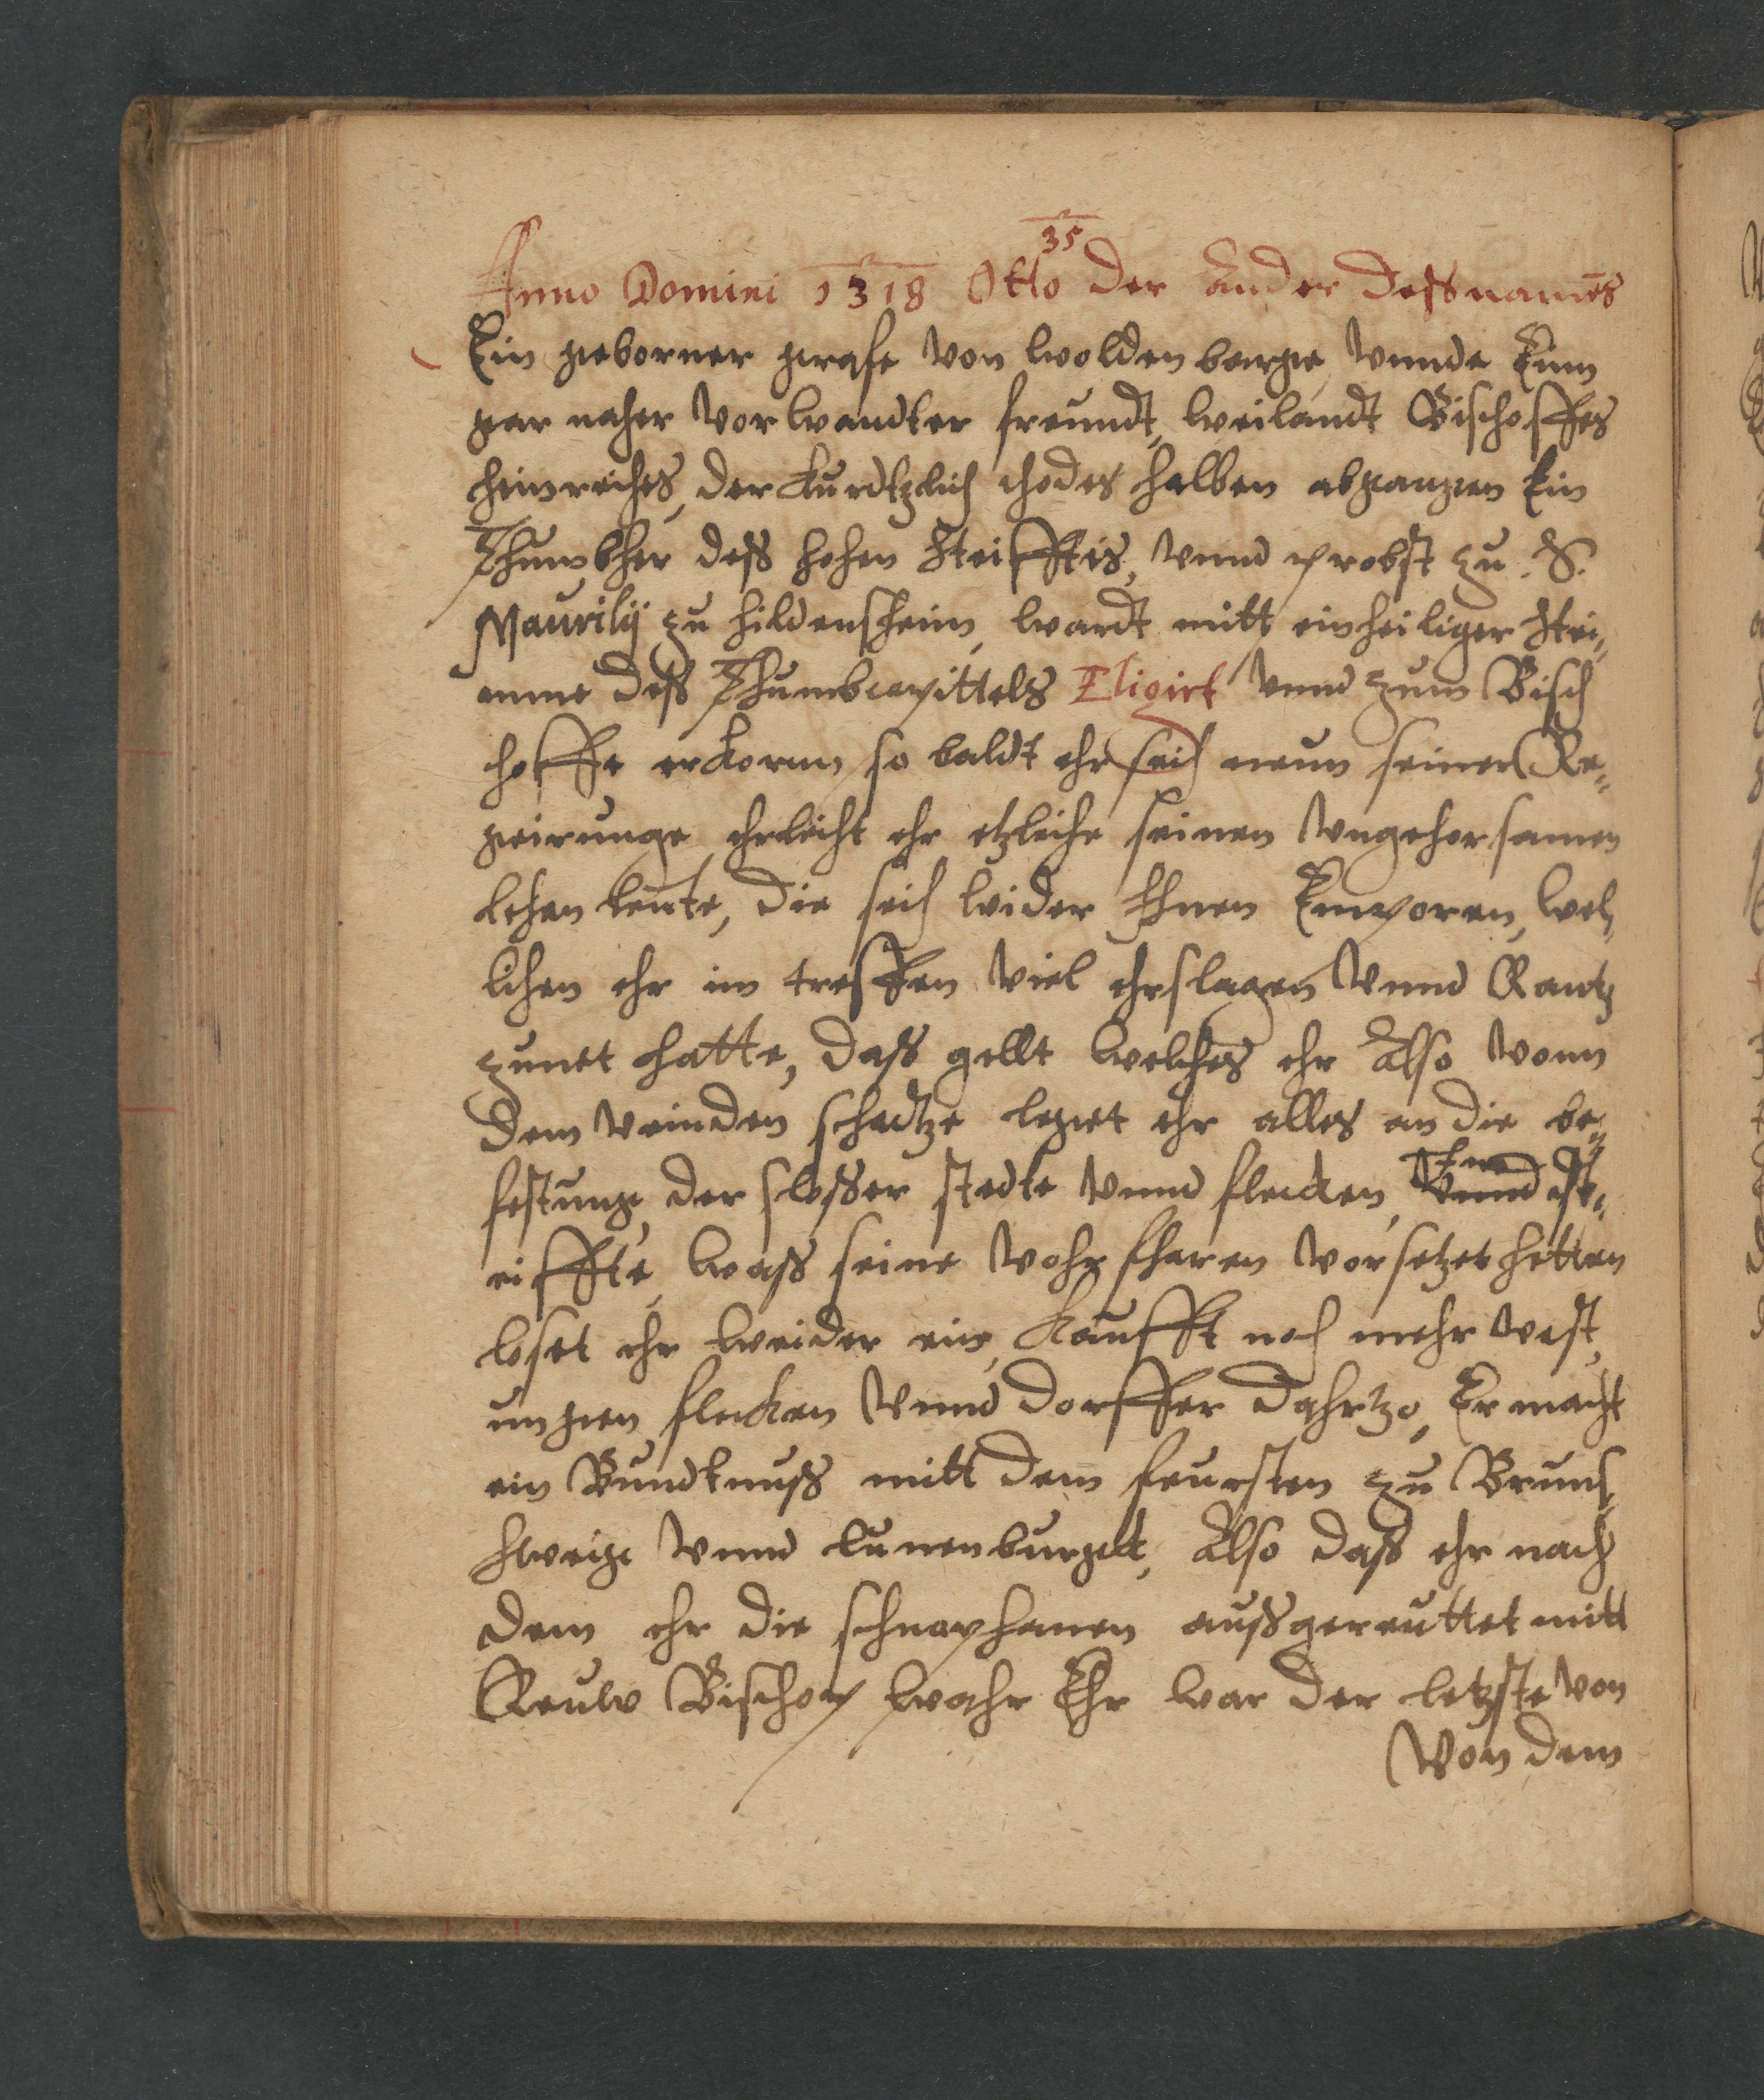 35
Anno Domini 1318 Otto der ander dessnamēs
Ein geborner grafe von woldenberge vnnde Einn
gar naher vorwandter freundt, weilandt Bischoffes
heinreiches, der kurdtzlich thodes halben abgangen Ein
Thumbher dess hohen Steifftes, vnnd probst zu .S.
Maurilij zu hildensheim, wardt mitt einheiliger Stei„
mme dess Thumbcapittels Eligirt vnnd zum Bisch
choffe erkornn, so baldt ehr seich nenn seiner Re„
geirunge, ehrleicht ehr etzleihe seinen vngehorsamen
lehenleute, die seich wider Ihnen Emporen, wel„
lchen ehr im treffen viel ehrslagen vnnd Rantz
zunet hatte, dass gellt welches ehr also vonn
dem veinden schadtze leget ehr alles an die be„
festunge der slosser stedte vnnd flecken, vnnd St„
eiffte, wass seine vohrfharen vorsetzet hetten
loset ehr weider ein, kaufft noch mehr vest„
ungen flecken vnnd dorffer dahrtzo, Er macht
ein Bundtnuss mitt dem feursten zu Bruns„
hweige vnnd lunenburgck, also dass ehr nach
dem ehr die schnaphanen aussgereuttet mitt
Reuw Bischop wahr Ehr war der letzste von
Von dem